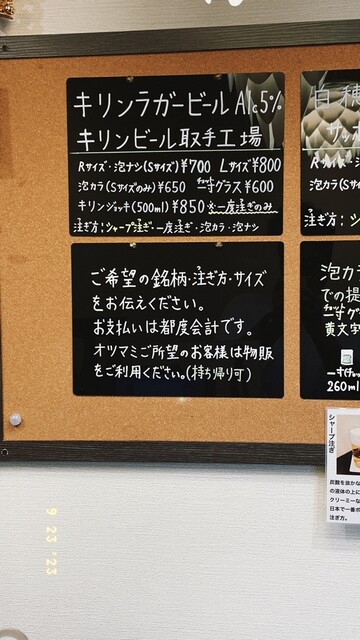 キリンラガービール Alc5%
キリンビール取手工場
Rサイズ・泡ナシ(Sサイズ)¥700 Lサイズ¥800
泡カラ(Sサイズのみ)¥650 一寸グラス¥600
キリンジョッキ(500ml)¥850 ※一度注ぎのみ
注ぎ方:シャープ注ぎ・一度注ぎ・泡カラ・泡ナシ
ご希望の銘柄・注ぎ方・サイズ
をお伝えください。
お支払いは都度会計です。
オツマミご所望のお客様は物販
をご利用ください。(持ち帰り可)
泡カラ(S
注ぎ方:シ
泡カ
での提
一寸グ
黄文字
260ml
シャープ注ぎ
炭酸を抜かな
の液体の上に
クリーミーな
日本で一番ポ
注ぎ方。
9 23 '23